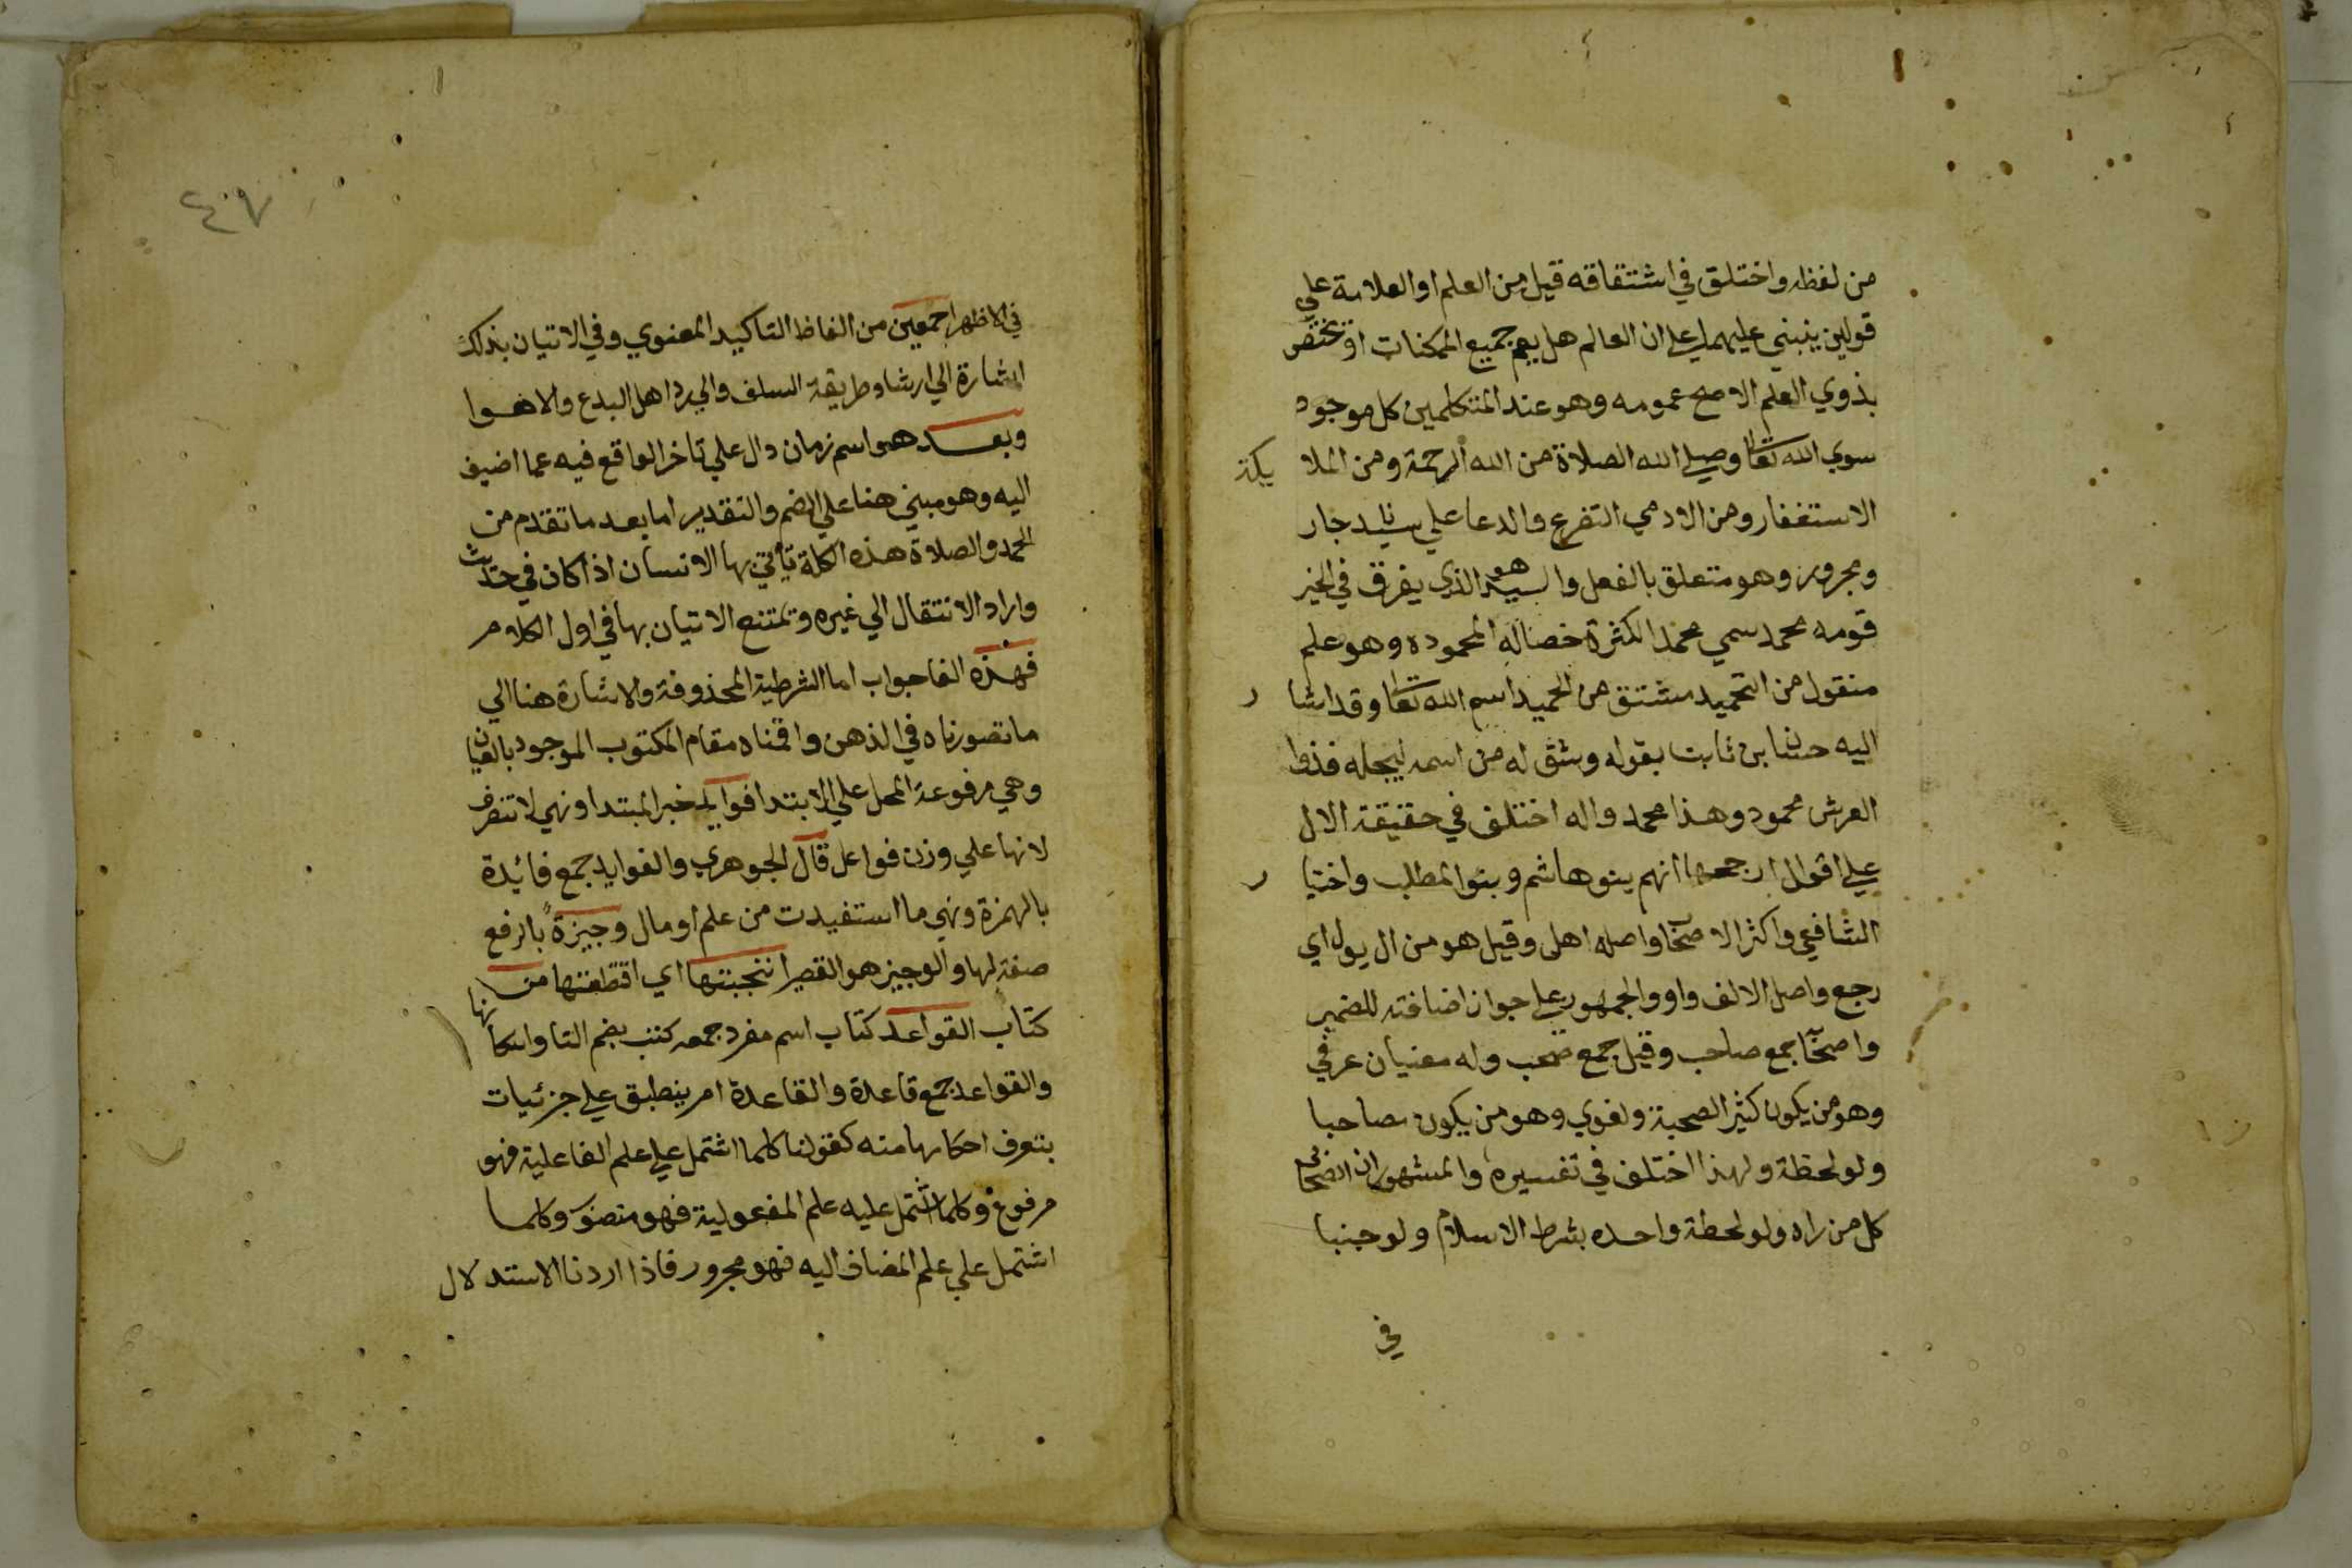 من لفظه واختلق في اشتقاقه قيل من العلم او العلامة علي
قولين ينبني عليهما علي ان العالم هل يعم جميع الممكنات او يختص
بذوي العلم الاصح عمومه وهو عند المتكلمين كل موجود
سوي الله تعا وصلي الله الصلاة من الله الرحمة ومن الملا يكة
الاستغفار ومن الادمي التضرع والدعا علي سيدنا جار
ومجرور وهو متعلق بالفعل والسيد هو الذي يفرق في الخير
قومه محمد سمي محمدا لكثرة خصاله المحموده وهو علم
منقول من التحميد مشتق من الحميد اسم الله تعا وقد اشا ر
اليه حسان بن ثابت بقوله وشق له من اسمه ليجله فذوا
العرش محمود وهذا محمد واله اختلف في حقيقة الال
علي اقوال ارجحها انهم بنو هاشم وبنوا المطلب واختيا ر
الشافعي واكثر الاصحا واصله اهل وقيل هو من ال يول اي
رجع واصل الالف واو والجمهور علي جواز اضافته للضمير
واصحا جمع صاحب وقيل جمع صحب وله معنيان عرفي
وهو من يكون كثير الصحبة ولغوي وهو من يكون مصاحبا
ولو لحظة ولهذا اختلف في تفسيره والمشهور ان الصحابي
كل من راه ولو لحظة واحده بشرط الاسلام ولو جنبا
في
٤٠٧
في الاظهر اجمعين من الفاظ التاكيد المعنوي وفي الاتيان بذلك
اشارة الي ارشاد طريقة السلف والي رد اهل البدع والاهوا
وبعد هو اسم زمان دال علي تاخر الواقع فيه عما اضيف
اليه وهو مبني هنا علي الضم والتقدير اما بعد ما تقدم من
الحمد والصلاة هذه الكلمة ياتي بها الانسان اذا كان في حديث
واراد الانتقال الي غيره وتمتنع الاتيان بها في اول الكلام
فهذه الفا جواب اما الشرطية المحذوفة والاشارة هنا الي
ما تصورناه في الذهن واقمناه مقام المكتوب الموجود بالعيان
وهي مرفوعة المحل علي الابتدا فوايد خبر المبتدا وهي لا تنصرف
لانها علي وزن فواعل قال الجوهري والفوايد جمع فائيدة
بالهمزة وهي ما استفيدت من علم او مال وجيزة بالرفع
صفة لها والوجيز هو القصير انتجبتها اي اقتطفتها من
كتاب القواعد كتاب اسم مفرد جمعه كتب بضم التا واسكا نها
والقواعد جمع قاعدة والقاعدة امر ينطبق علي جزئيات
بتعرف احكامها منه كقولنا كلما اشتمل علي علم الفاعلية فهو
مرفوع وكلما اشتمل عليه علم المفعولية فهو منصو وكلما
اشتمل علي علم المضاف اليه فهو مجرور فاذا اردنا الاستدلال